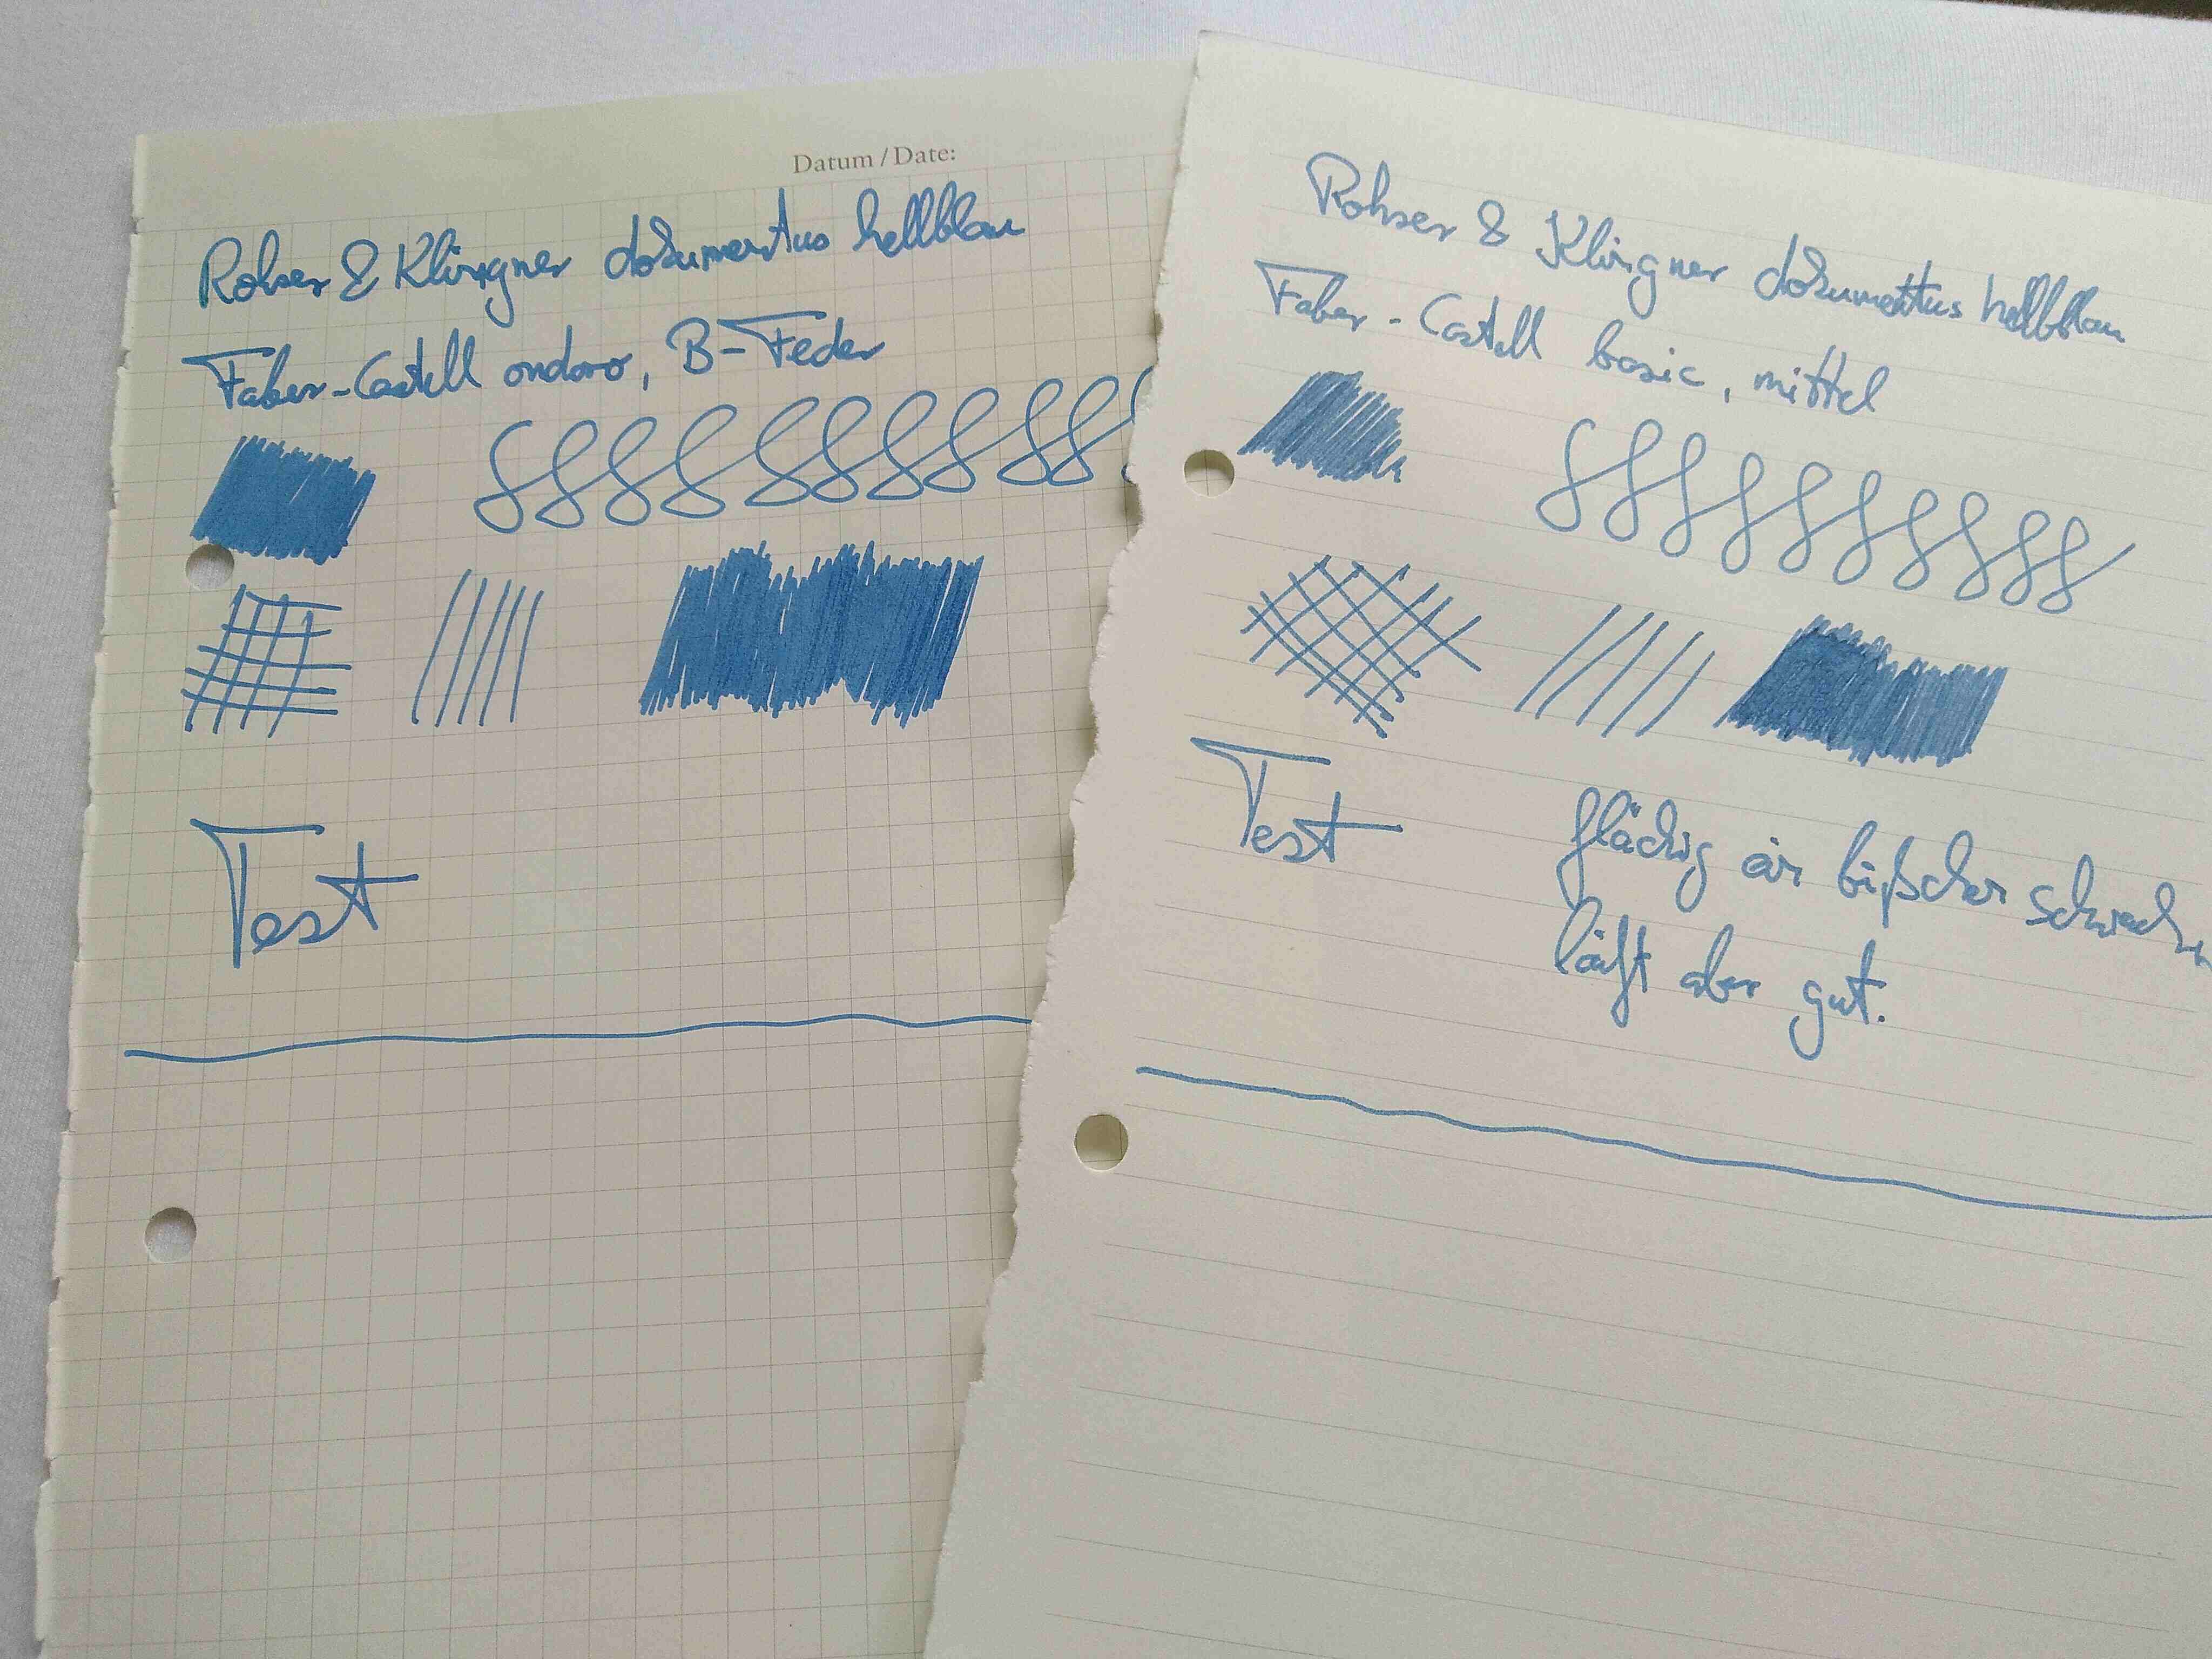 Datum / Date:
Rohrer & Klingner dokumentus hellblau
Faber-Castell ondoro, B-Feder
Test
Rohrer & Klingner dokumentus hellblau
Faber-Castell basic, mittel
Test
flächig ein bißchen
läuft aber gut.